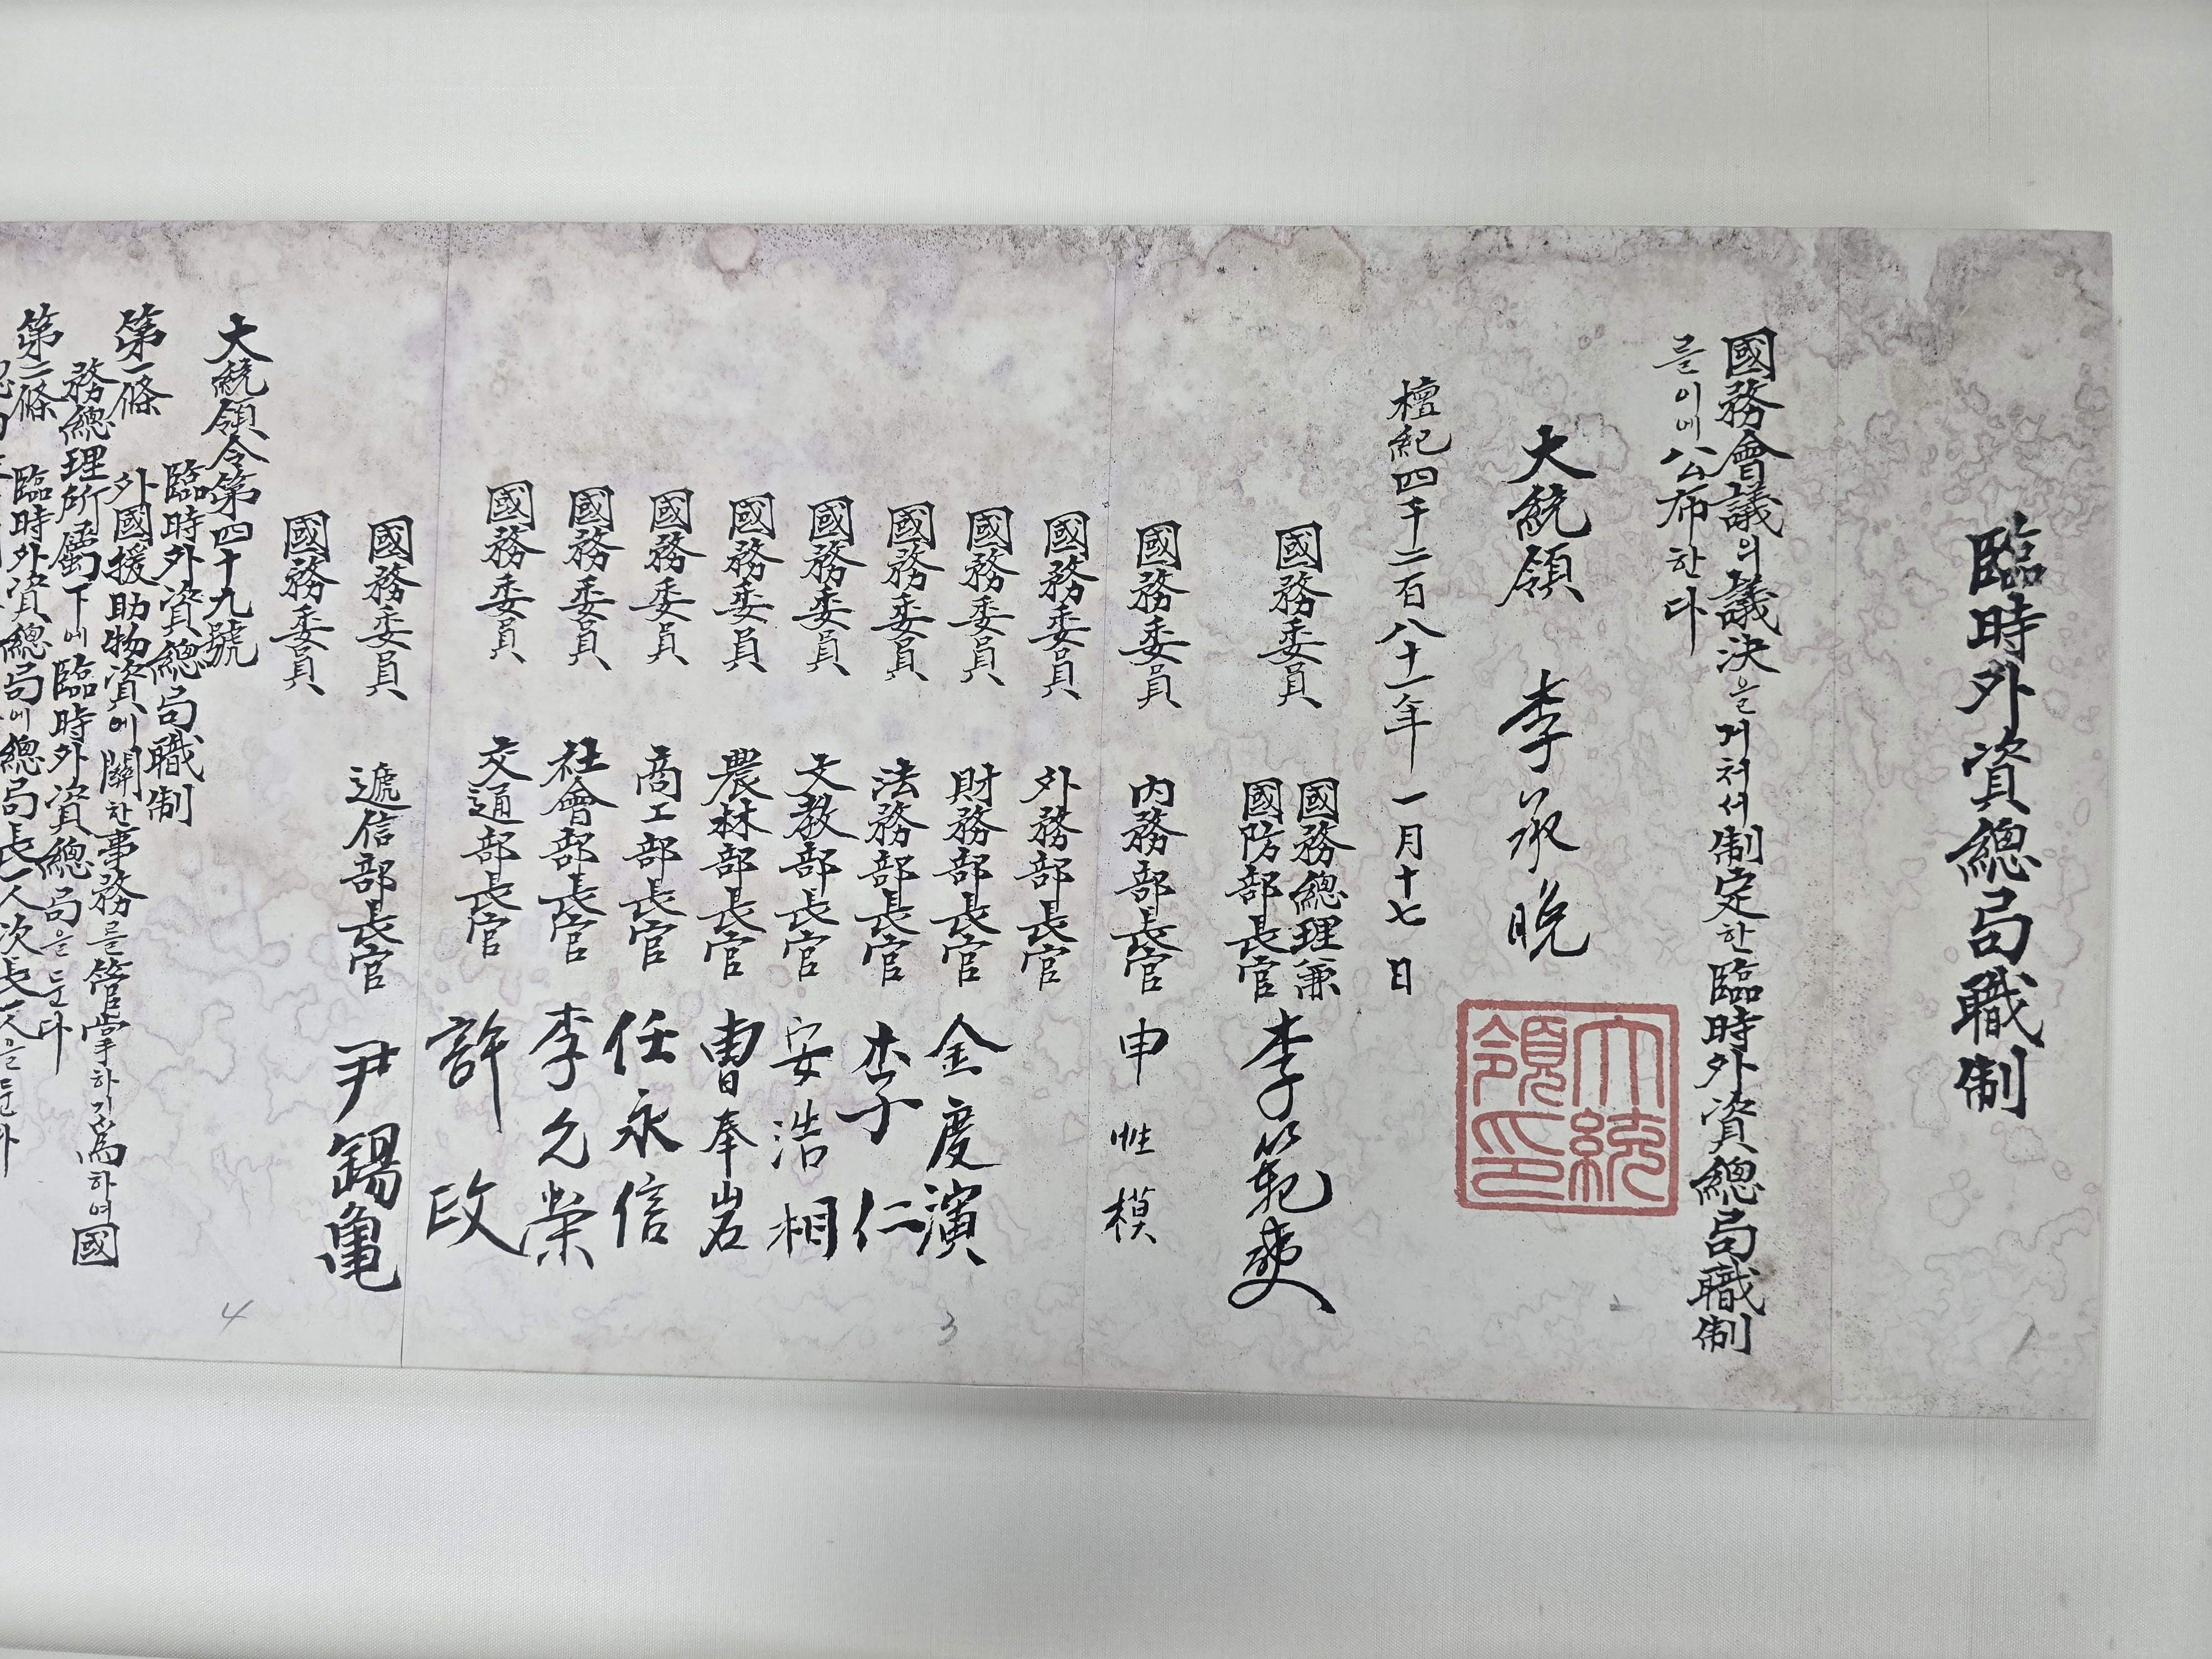 臨時外資總局職制
國務會議의議決을거처서制定한臨時外資總局職制
를이에公布한다
大統領 李承晩
大統領印
檀紀四千二百八十二年一月十七日
國務委員 國務總理兼
國防部長官 李範奭
國務委員 內務部長官 申性模
國務委員 外務部長官
國務委員 財務部長官 金度演
國務委員 法務部長官 李仁
國務委員 文敎部長官 安浩相
國務委員 農林部長官 曺奉岩
國務委員 商工部長官 任永信
國務委員 社會部長官 李允榮
國務委員 交通部長官 許政
國務委員 遞信部長官 尹錫龜
國務委員
大統領令第四十九號
臨時外資總局職制
第一條 外國援助物資에關한事務를管掌하기爲하여國
務總理所屬下에臨時外資總局을둔다
第二條 臨時外資總局에總局長一人次長一人을둔다
1
2
3
4